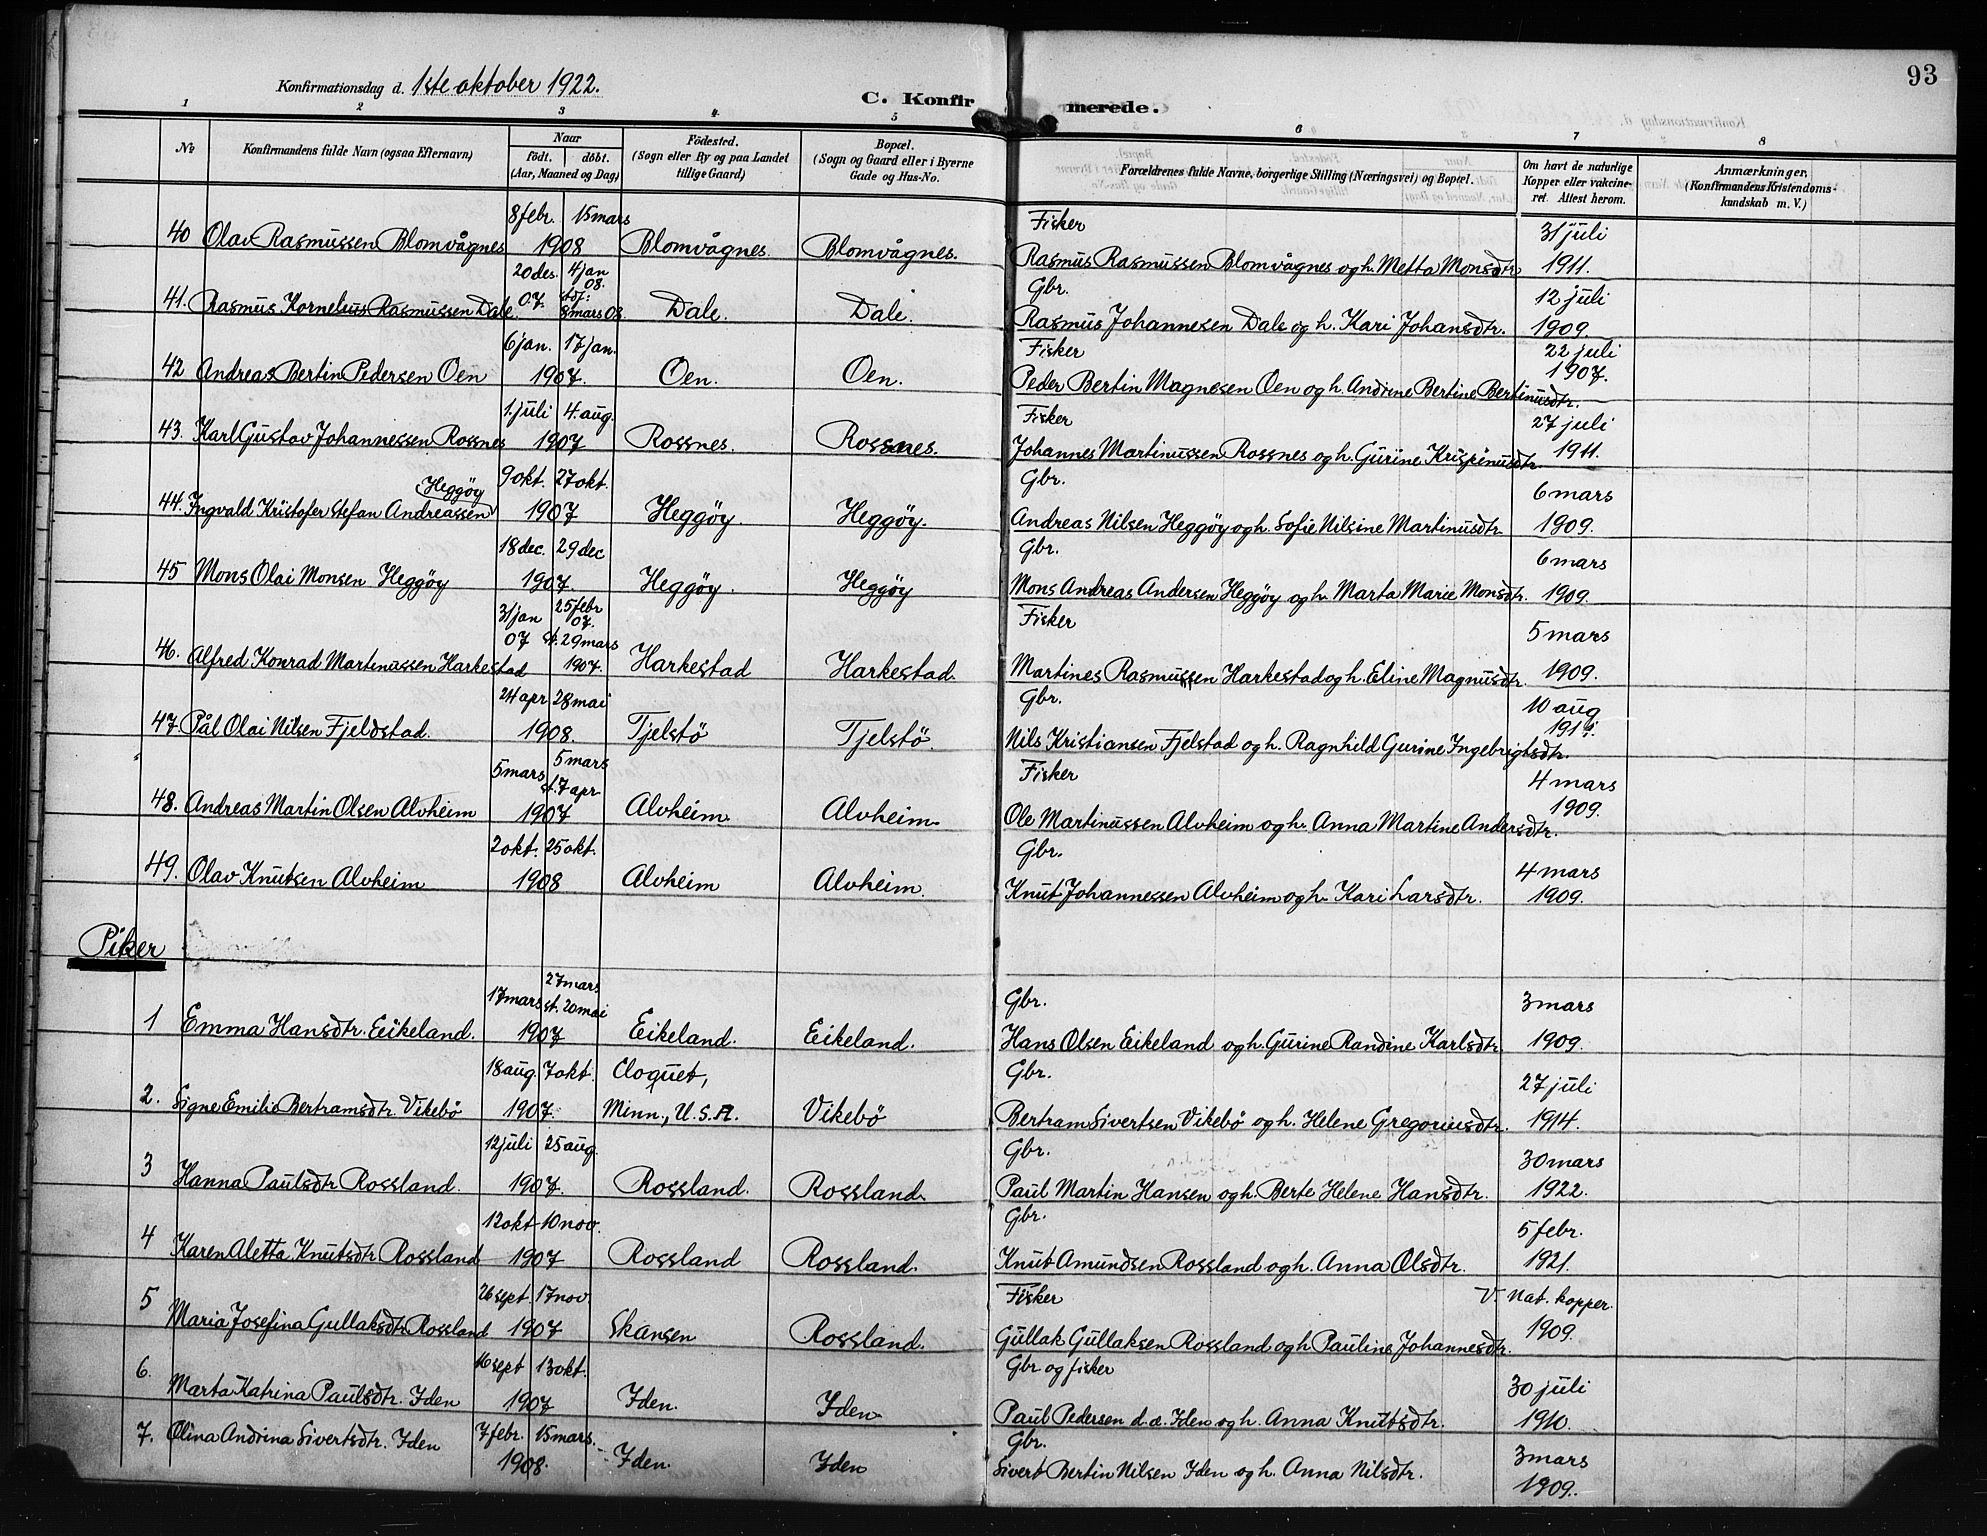 93
Konfirmationsdag d. 1ste oktober 1922.
C. Konfirmerede.
1 2 3 4 5 6 7 8
No
Konfirmandens fulde Navn (ogsaa Efternavn)
Naar
født. døbt.
(Aar, Maaned og Dag)
Födested.
(Sogn eller By og paa Landet
tillige Gaard)
Bopæl.
(Sogn og Gaard eller i Byerne
Gade og Hus-No.
Forældrenes fulde Navne, borgerlige Stilling (Næringsvei) og Bopæl.
Om havt de naturlige
Kopper eller vakcine-
ret. Attest herom.
Anmærkninger,
(Konfirmandens Kristendoms-
kundskab m. V.)
8 febr. 15 mars Fisker 31 juli
40 Olav Rasmussen Blomvågnes 1908 Blomvågnes. Blomvågnes. Rasmus Rasmussen Blomvågnes og h. Metta Monsdtr 1911.
20 des. 4 jan 08. Gbr. 12 juli
41. Rasmus Kornelius Rasmussen Dale. 07. 8 mars 08 Dale. Dale. Rasmus Johannesen Dale og h. Kari Johansdtr. 1909.
6 jan. 17 jan. Fisker 22 juli
42 Andreas Bertin Pedersen Oen 1907. Oen. Oen. Peder Bertin Magnesen Oen og h. Andrine Bertine Bertinusdtr. 1907.
1. juli 4. aug. Fisker 27 juli
43. Karl Gustav Johannessen Rossnes 1907 Rossnes. Rossnes. Johannes Martinussen Rossnes og h. Gurine Krispinusdtr. 1911.
Heggöy 9 okt. 27 okt. Gbr. 6 mars
44. Ingvald Kristofer Stefan Andreassen 1907 Heggöy. Heggöy. Andreas Nilsen Heggöy og h. Sofie Nilsine Martinusdtr 1909.
18 dec. 29 dec Gbr. 6 mars
45 Mons Olai Monsen Heggöy 1907. Heggöy. Heggöy Mons Andreas Andersen Heggöy og h. Marta Marie Monsdtr. 1909.
31 jan 25 febr 07. Fisker
07 st. 29 mars 5 mars
46. Alfred Konrad Martinussen Harkestad 1907. Harkestad Harkestad. Martines Rasmussen Harkestad og h. Eline Magnusdtr. 1909.
24 apr 28 mai Gbr. 10 aug
47. Pål Olai Nilsen Fjeldstad. 1908. Tjelstö Tjelstö. Nils Kristiansen Fjelstad og h. Ragnhild Gurine Ingebrigtsdtr.
5 mars 5 mars Fisker 4 mars
st. 7 apr
48. Andreas Martin Olsen Alvheim 1907 Alvheim. Alvheim. Ole Martinussen Alvheim og h. Anna Martine Andersdtr. 1909.
2 okt. 25 okt. Gbr. 4 mars
49. Olav Knutsen Alvheim 1908 Alvheim Alvheim. Knut Johannessen Alvheim og h. Kari Larsdtr. 1909.
Piker
27 mars
17 mars st. 20 mai Gbr. 3 mars
1 Emma Hansdtr. Eikeland. 1907 Eikeland. Eikeland. Hans Olsen Eikeland og h. Gurine Randine Karlsdtr. 1909.
18 aug. 7 okt. Cloquet, Gbr. 27 juli
2. Signe Emilie Bertramsdtr. Vikebö 1907. Minn., U.S.A. Vikebö Bertram Sivertsen Vikebö og h. Helene Gregoriusdtr. 1914.
12 juli 25 aug. Gbr. 30 mars
3 Hanna Paulsdtr Rossland. 1907. Rossland. Rossland. Paul Martin Hansen og h. Berte Helene Hansdtr. 1922.
12 okt 10 nov. Gbr. 5 febr.
4 Karen Aletta Knutsdtr Rossland 1907 Rossland Rossland. Knut Amundsen Rossland og h. Anna Olsdtr. 1921.
26 sept. 17 nov. Fisker V. Nat. kopper.
5 Maria Josefina Gullaksdtr Rossland 1907 Skansen Rossland. Gullak Gullaksen Rossland og h. Pauline Johannesdtr. 1909.
16 sept 13 okt. Gbr og fisker 30 juli
6. Marta Katrina Paulsdtr. Iden 1907 Iden. Iden Paul Pedersen d. æ. Iden og h. Anna Knutsdtr. 1910.
7 febr. 15 mars. Gbr. 3 mars
7. Olina Andrina Sivertsdtr. Iden 1908. Iden. Iden Sivert Bertin Nilsen Iden og h. Anna Nilsdtr. 1909.